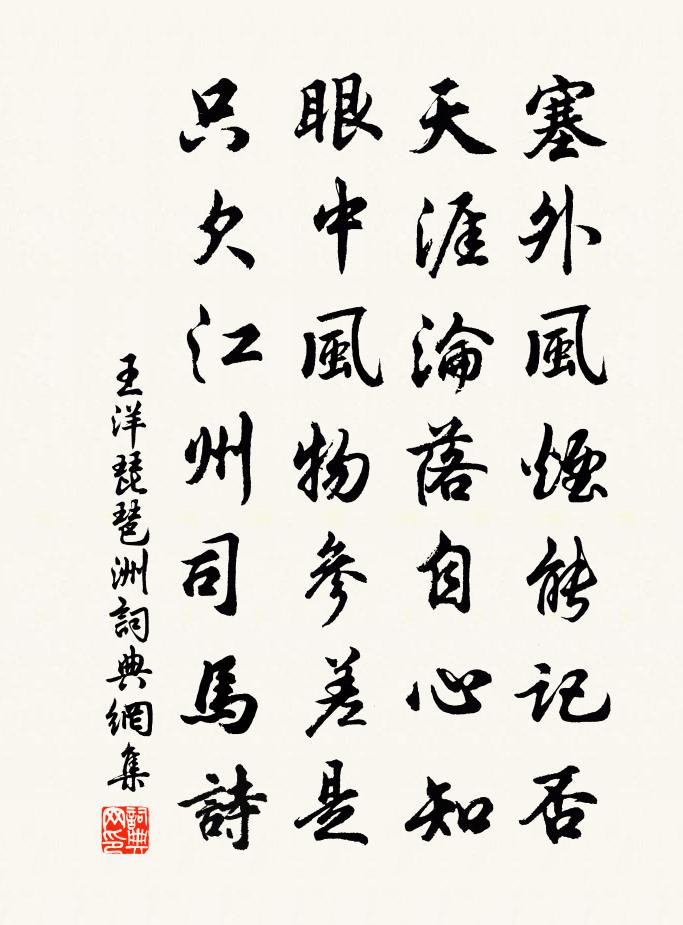 塞外風煙能記否
天涯淪落自心知
眼中風物參差是
只欠江州司馬詩
王洋琵琶洲詞典網集
詞典網印